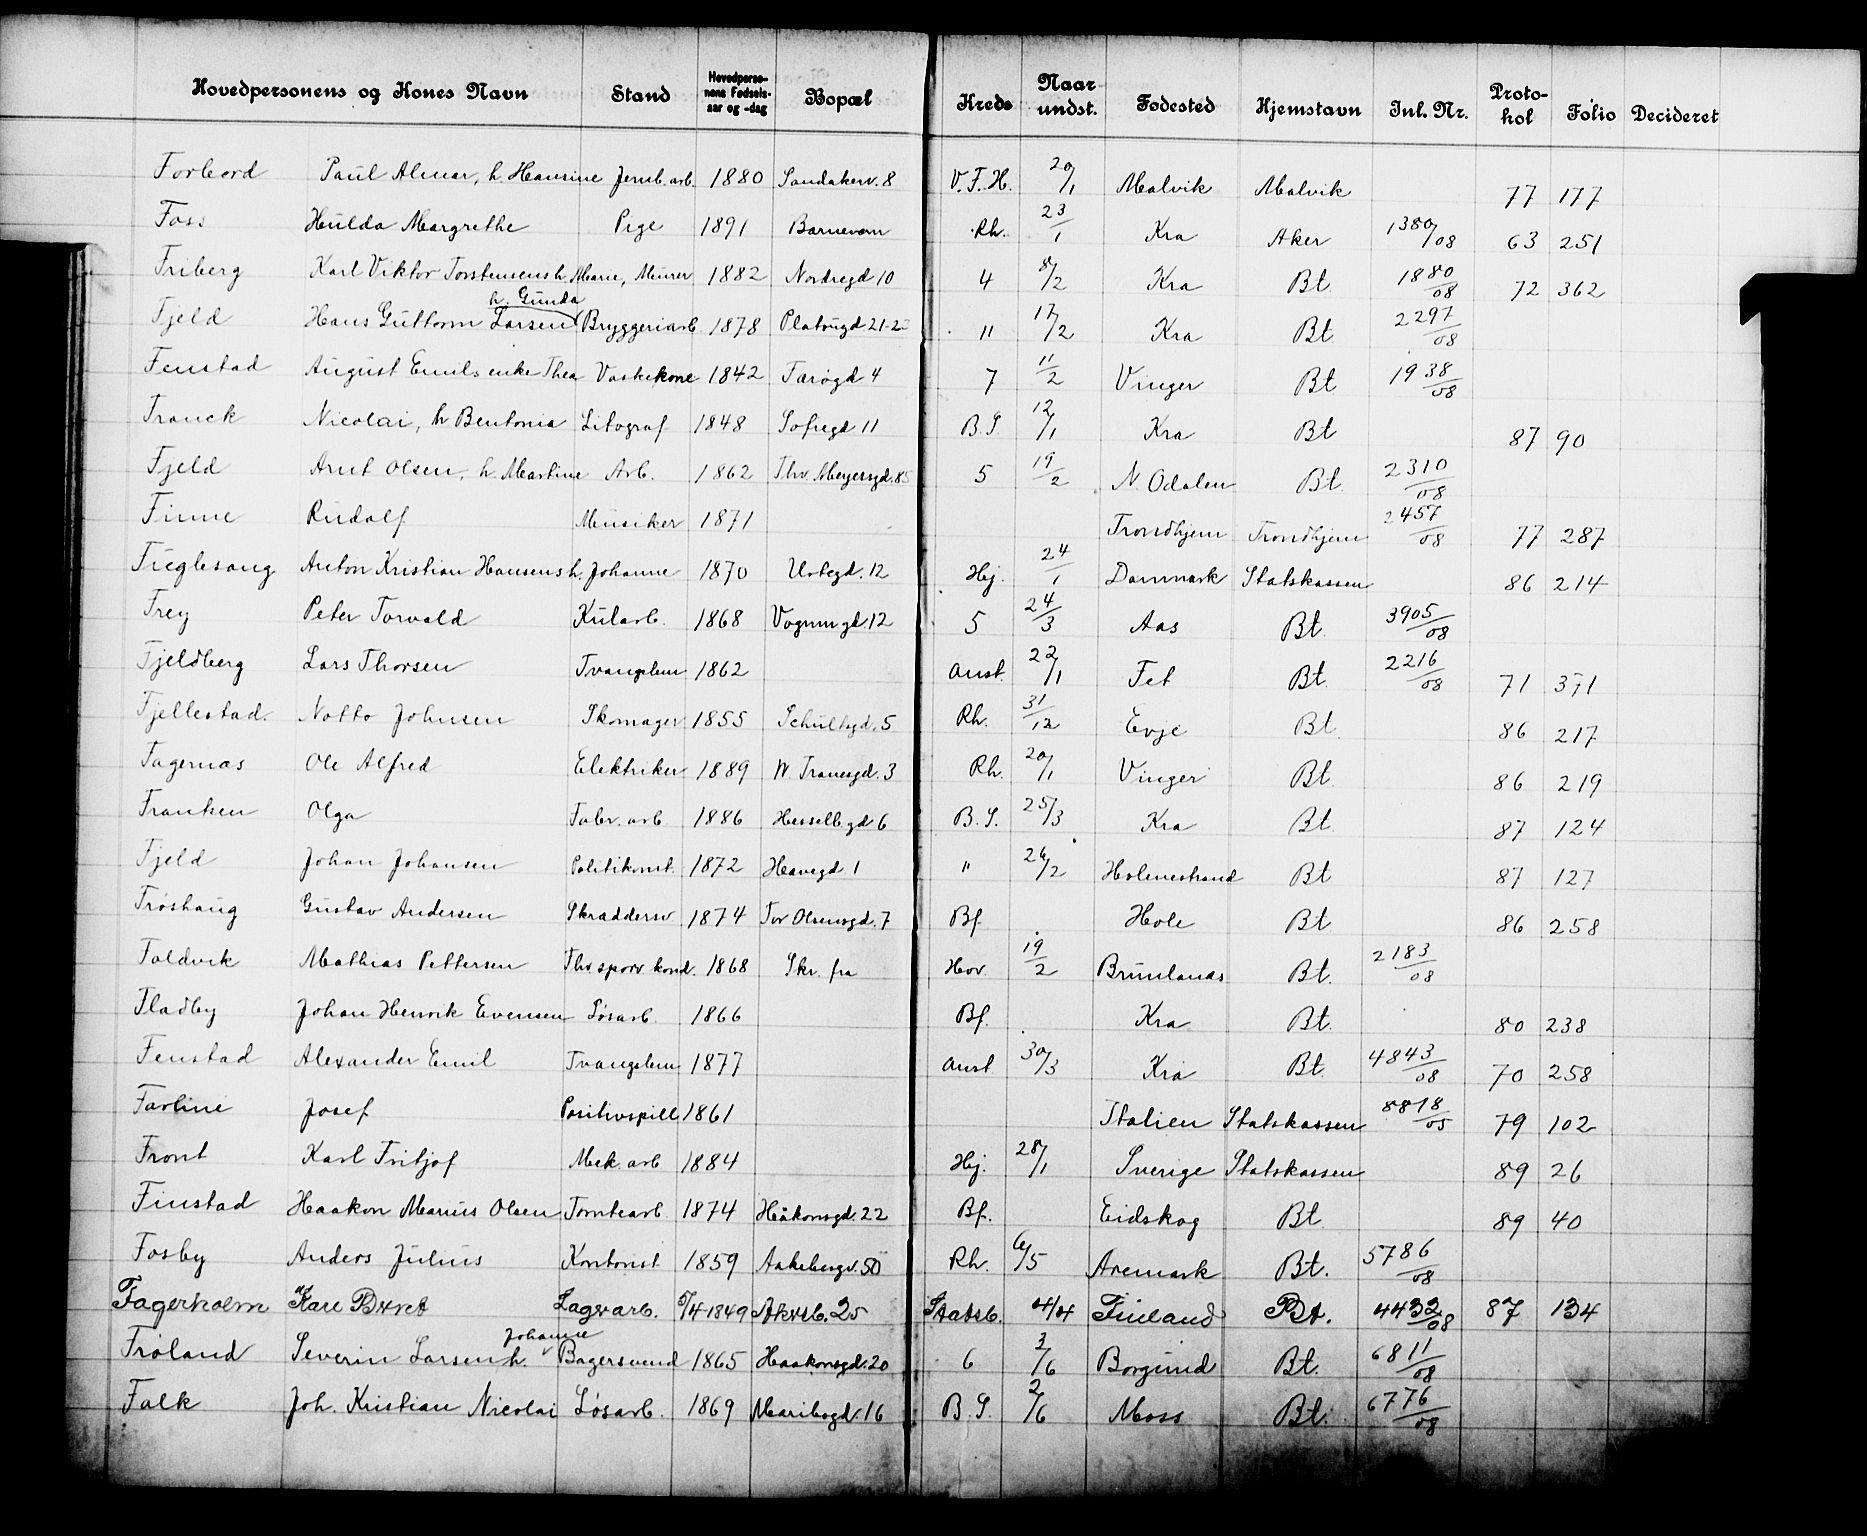 Hovedpersonens og Kones Navn Stand Hovedpersonens Fødselsaar og -dag Bopæl Kreds Naar undst. Fødested Hjemstavn Inl. Nr. Protokol Folio Decideret
Forbord Paul Almar, h. Hansine Jernb.arb. 1880 Sandakerv. 8 V.F.H. 20/1 Malvik Malvik 77 177
Foss Hulda Margrethe Pige 1891 Barnevern Rh. 23/1 Kra Aker 1380/08 63 251
Friberg Karl Viktor Torstensens h. Marie, Murer 1882 Nordregd 10 4 8/2 Kra Bt. 1880/08 72 362
h. Gunda
Fjeld Hans Guttorm Larsen Bryggeriarb. 1878 Platougd 21-2 11 17/2 Kra Bt. 2297/08
Fenstad August Emils enke Thea Vaskekone 1842 Farøgd 4 7 11/2 Vinger Bt 1938/08
Franck Nicolai, h Bentonia Litograf 1848 Sofiegd 11 B.S. 12/1 Kra Bt 87 90
Fjeld Arnt Olsen, h. Martine Arb. 1862 Thv. Meyersgd. 85 5 19/2 N. Odalen Bt. 2310/08
Finne Rudolf Musiker 1871 Trondhjem Trondhjem 2457/08 77 287
Fuglesang Anton Kristian Hansens h. Johanne 1870 Urtegd. 12 Hj. 24/1 Danmark Statskassen 86 214
Frey Peter Torvald Kularb. 1868 Vognmgd. 12 5 24/3 Aas Bt. 3905/08
Fjeldberg Lars Thorsen Tvangslem 1862 Anst. 22/1 Fet Bt. 2216/08 71 371
Fjellestad. Notto Johnsen Skomager 1855 Schultzgd. 5 Rh. 31/12 Evje Bt. 86 217
Fagernæs Ole Alfred Elektriker 1889 W Tranesgd. 3 Rh. 20/1 Vinger Bt. 86 219
Franken Olga Fabr. arb 1886 Hesselb.gd 6 B.S. 25/3 Kra Bt. 87 124
Fjeld Johan Johansen Politikonst. 1872 Havegd 1 " 26/2 Holmestrand Bt 87 127
Frøshaug Gustav Andersen Skræddersv. 1874 Tor Olsensgd. 7 Bf. Hole Bt. 86 258
Foldvik Mathias Pettersen Fhv. sporv. kond. 1868 Skr. fra Hov. 19/2 Brunlanæs Bt. 2183/08
Fladby Johan Henrik Evensen Løsarb. 1866 Bf. Kra Bt. 80 238
Fenstad Alexander Emil Tvangslem 1877 Anst 30/3 Kra Bt. 4843/08 70 258
Farline Josef Positivspill 1861 Italien Statskassen 8818/05 79 102
Front Karl Fritjof Mek. arb 1884 Hj. 28/1 Sverige Statskassen 89 26
Finstad Haakon Marius Olsen Tomtearb. 1874 Håkonsgd. 22 Bf. Eidskog Bt. 89 40
Fosby Anders Julius Kontorist 1859 Aakebergv. 50 Rh. 6/5 Aremark Bt. 5786/08
Fagerholm Kare Lagerarb. 1849 25 Statsb. 4/4 Finland Bt. 4432/08 87 134
Johanne
Frøland Severin Larsen h. Bagersvend 1865 Haakonsgd. 20 6 3/6 Borgund Bt. 6811/08
Falk Joh. Kristian Nicolai Løsarb. 1869 Maribogd. 16 B.S. 2/6 Moss Bt. 6776/08